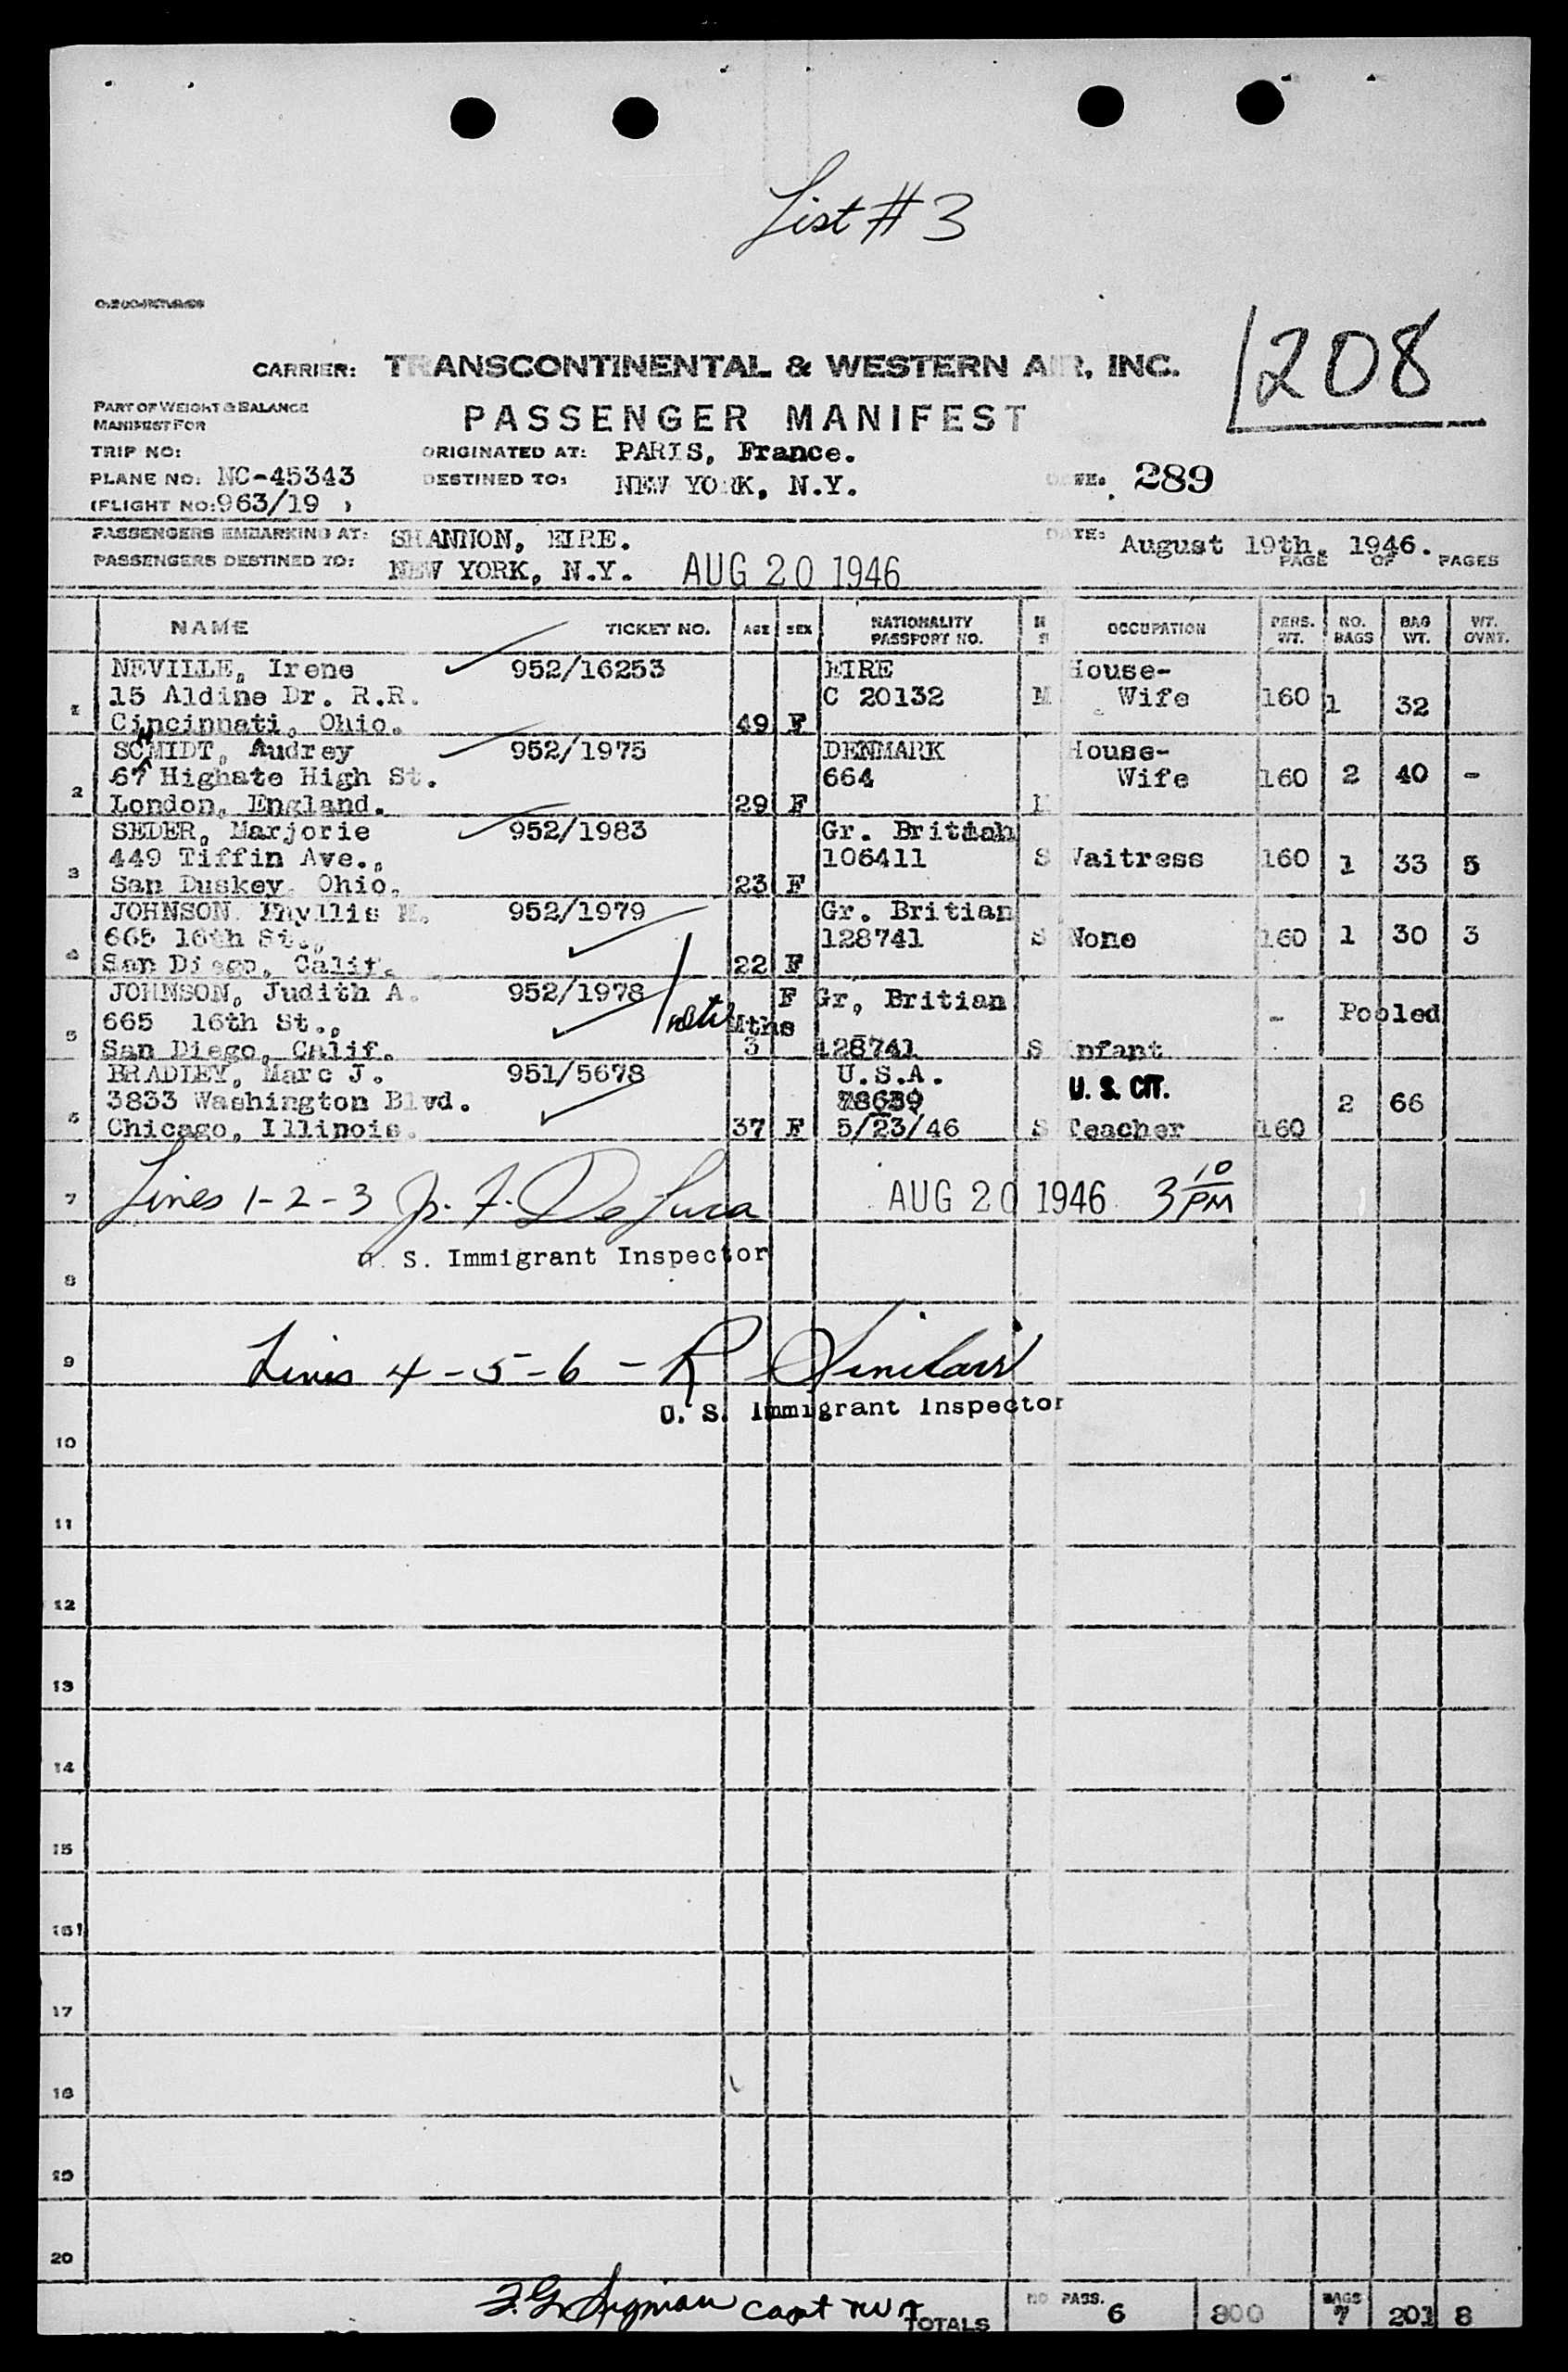 List # 3
208
CARRIER: TRANSCONTINENTAL & WESTERN AIR, INC.
PART OF WEIGHT & BALANCE
MANIFEST FOR
PASSENGER MANIFEST
TRIP NO:
ORIGINATED AT: PARIS, France.
PLANE NO: NC-45343
DESTINED TO: NEW YORK, N.Y.
289
(FLIGHT NO: 963/19 )
PASSENGERS EMBARKING AT: SHANNON, EIRE.
DATE: August 19th, 1946.
PASSENGERS DESTINED TO: NEW YORK, N.Y. AUG 20 1946
PAGE OF PAGES
NAME TICKET NO. AGE SEX NATIONALITY PASSPORT NO. OCCUPATION PERS. WT. NO. BAGS BAG WT. WT. OVNT.
NEVILLE, Irene 952/16253 EIRE House-
1 15 Aldine Dr. R.R. C 20132 M Wife 160 1 32
Cincinnati, Ohio. 49 F
SCHMIDT, Audrey 952/1975 DENMARK House-
2 67 Highate High St. 664 Wife 160 2 40 -
London, England. 29 F M
SEDER, Marjorie 952/1983 Gr. Britian
3 449 Tiffin Ave., 106411 S Waitress 160 1 33 5
San Duskey, Ohio. 23 F
JOHNSON, Phyllis M. 952/1979 Gr. Britian
4 665 16th St., 128741 S None 160 1 30 3
San Diego, Calif. 22 F
JOHNSON, Judith A. 952/1978 F Gr, Britian
5 665 16th St., Mths - Pooled
San Diego, Calif. 3 128741 S Infant
BRADLEY, Marc J. 951/5678 U.S.A. U. S. CIT.
6 3833 Washington Blvd. 2 66
Chicago, Illinois. 37 F 5/23/46 S Teacher 160
7 Lines 1-2-3 Jr. F. De Luca AUG 20 1946 3 10 PM
U. S. Immigrant Inspector
8
9 Lines 4-5-6 - R Sinclair
U. S. Immigrant Inspector
10
11
12
13
14
15
16
17
18
19
20
Capt TWA
TOTALS NO PASS. 6 800 BAGS 7 201 8